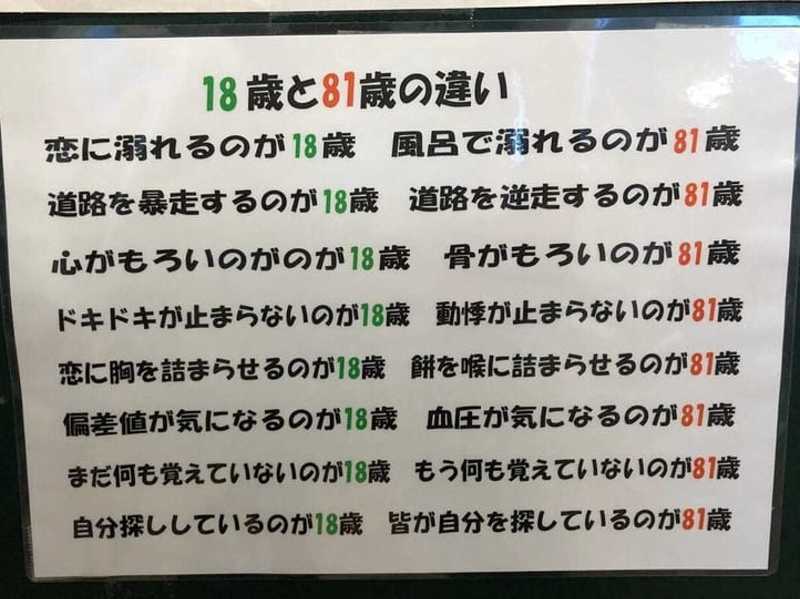 18歳と81歳の違い
恋に溺れるのが18歳 風呂で溺れるのが81歳
道路を暴走するのが18歳 道路を逆走するのが81歳
心がもろいのがのが18歳 骨がもろいのが81歳
ドキドキが止まらないのが18歳 動悸が止まらないのが81歳
恋に胸を詰まらせるのが18歳 餅を喉に詰まらせるのが81歳
偏差値が気になるのが18歳 血圧が気になるのが81歳
まだ何も覚えていないのが18歳 もう何も覚えていないのが81歳
自分探ししているのが18歳 皆が自分を探しているのが81歳